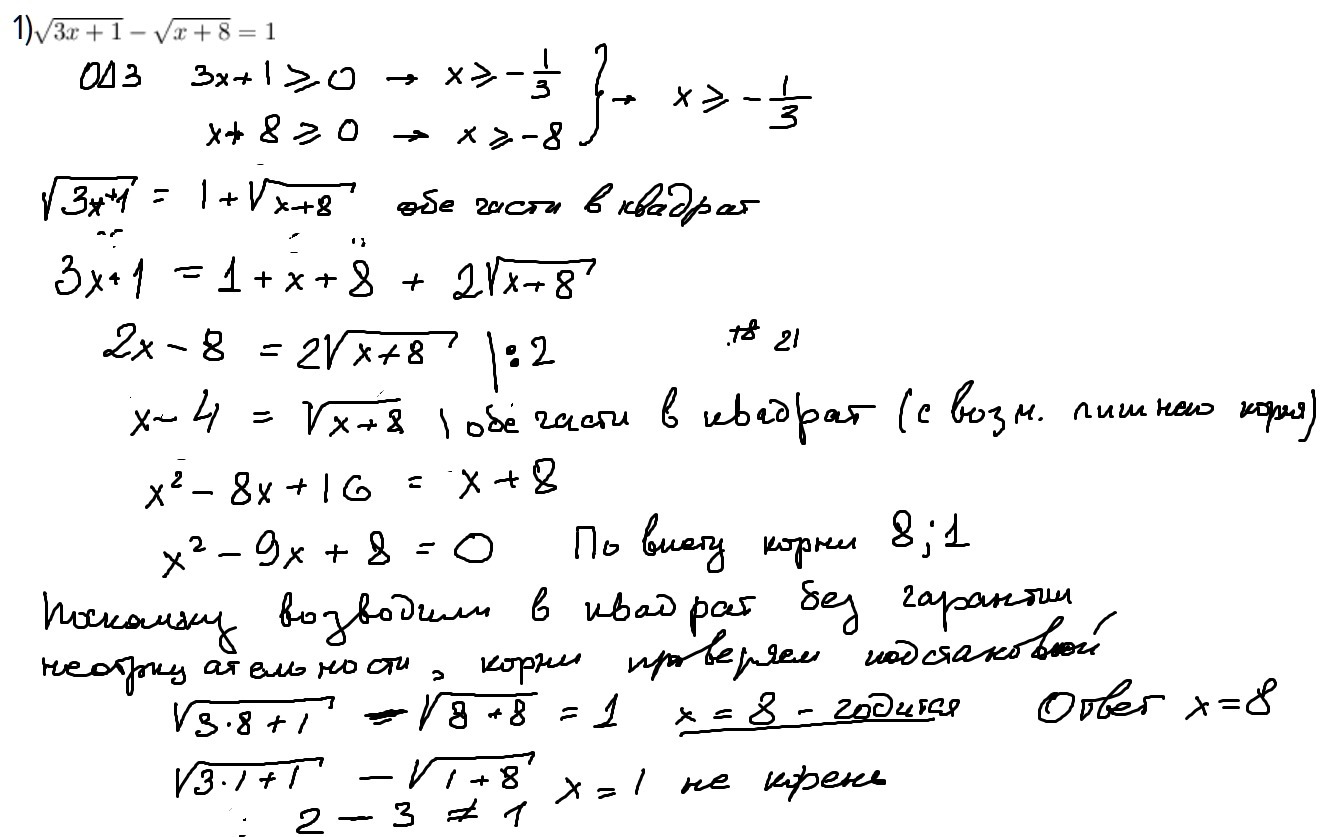 1) √3x + 1 − √x + 8 = 1
ОДЗ 3x+1 ⩾ 0 → x ⩾ −1/3 } → x ⩾ −1/3
x+8 ⩾ 0 → x ⩾ −8
√3x+1 = 1+√x+8 обе части в квадрат
3x+1 = 1+x+8 + 2√x+8
2x−8 = 2√x+8 |:2
+8 21
x−4 = √x+8 | обе части в квадрат (с возм. лишнего корня)
x² − 8x+16 = x+8
x² − 9x + 8 = 0 По виету корни 8;1
Поскольку возводили в квадрат без гарантии
неотрицательности, корни проверяем подстановкой
√3·8+1 − √8+8 = 1 x = 8 − годится Ответ x=8
√3·1+1 − √1+8 x = 1 не корень
2 − 3 ≠ 1